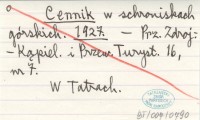 Cennik w schroniskach
górskich. 1927. – Prz. Zdroj:
- Kąpiel. i Przew. Turyst. 16,
nr 7.
W Tatrach.
BT/004/0490